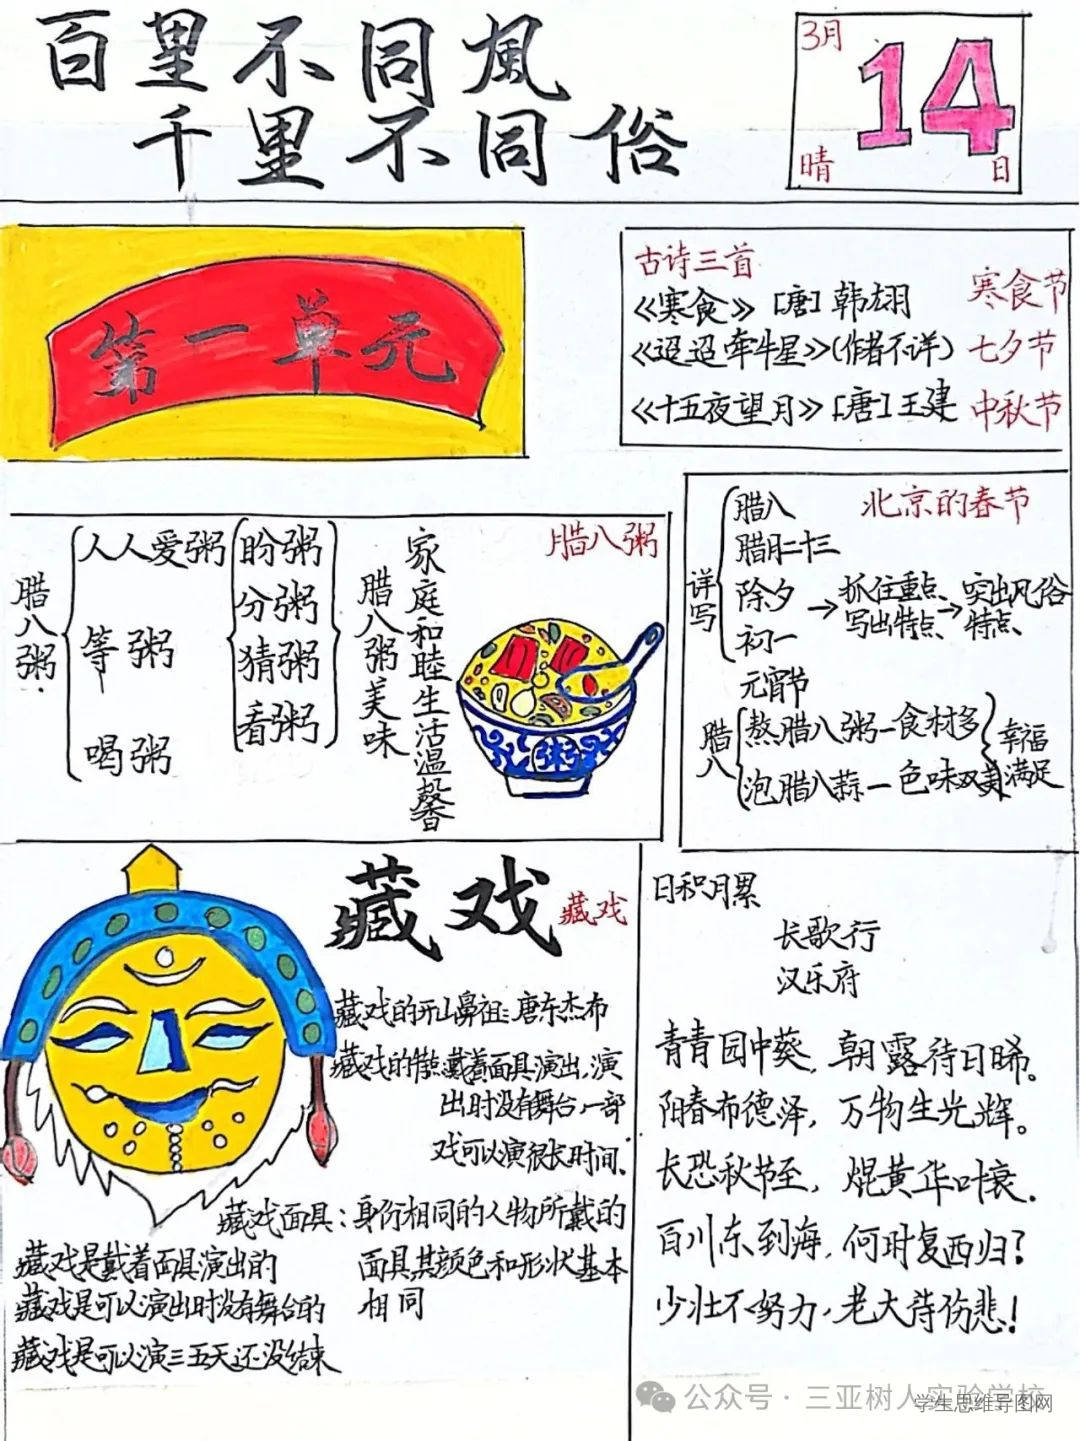 百里不同風
千里不同俗
3月
14
晴
日
第一单元
古诗三首
《寒食》[唐]韩翃 寒食节
《迢迢牵牛星》(作者不详) 七夕节
《十五夜望月》[唐]王建 中秋节
腊八粥
腊八粥
人人爱粥
等粥
喝粥
盼粥
分粥
猜粥
看粥
腊八粥美味
家庭和睦生活温馨
粥
北京的春节
详写
腊八
腊月二十三
除夕
初一
元宵节
→抓住重点、写出特点→突出风俗特点、
腊八
熬腊八粥一食材多
泡腊八蒜一色味双美
幸福满足
藏戏 藏戏
藏戏的开山鼻祖:唐东杰布
藏戏的特点:戴着面具演出,演
出时没有舞台,一部
戏可以演很长时间、
藏戏面具:身份相同的人物所戴的
面具其颜色和形状基本
相同
藏戏是戴着面具演出的
藏戏是可以演出时没有舞台的
藏戏是可以演三五天还没结束
日积月累
长歌行
汉乐府
青青园中葵,朝露待日晞。
阳春布德泽,万物生光辉。
长恐秋节至,焜黄华叶衰.
百川东到海,何时复西归?
少壮不努力,老大徒伤悲!
公众号·三亚树人实验学校
学生思维导图网